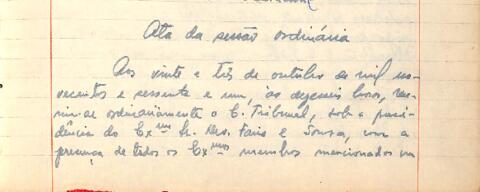 Ata da sessão ordinária
Aos vinte e três de outubro de mil no-
vecentos e sessenta e um, às dezesseis horas, reu-
niu-se ordinariamente o E. Tribunal, sob a presi-
dência do Exmo Sr. Des. Faria e Sousa, com a
presença de todos os Exmos membros mencionados na